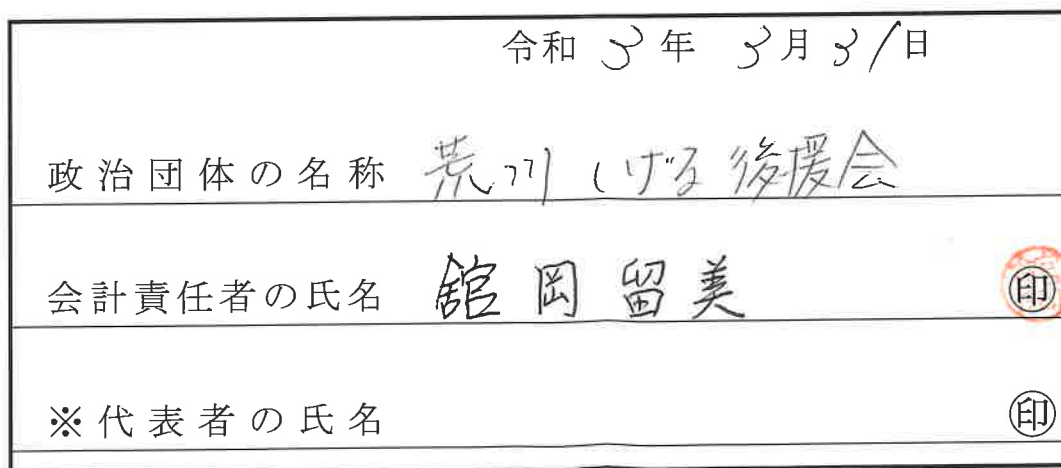 令和 3年 3月31日
政治団体の名称 荒川しげる後援会
会計責任者の氏名 舘岡留美 ㊞
※代表者の氏名 ㊞